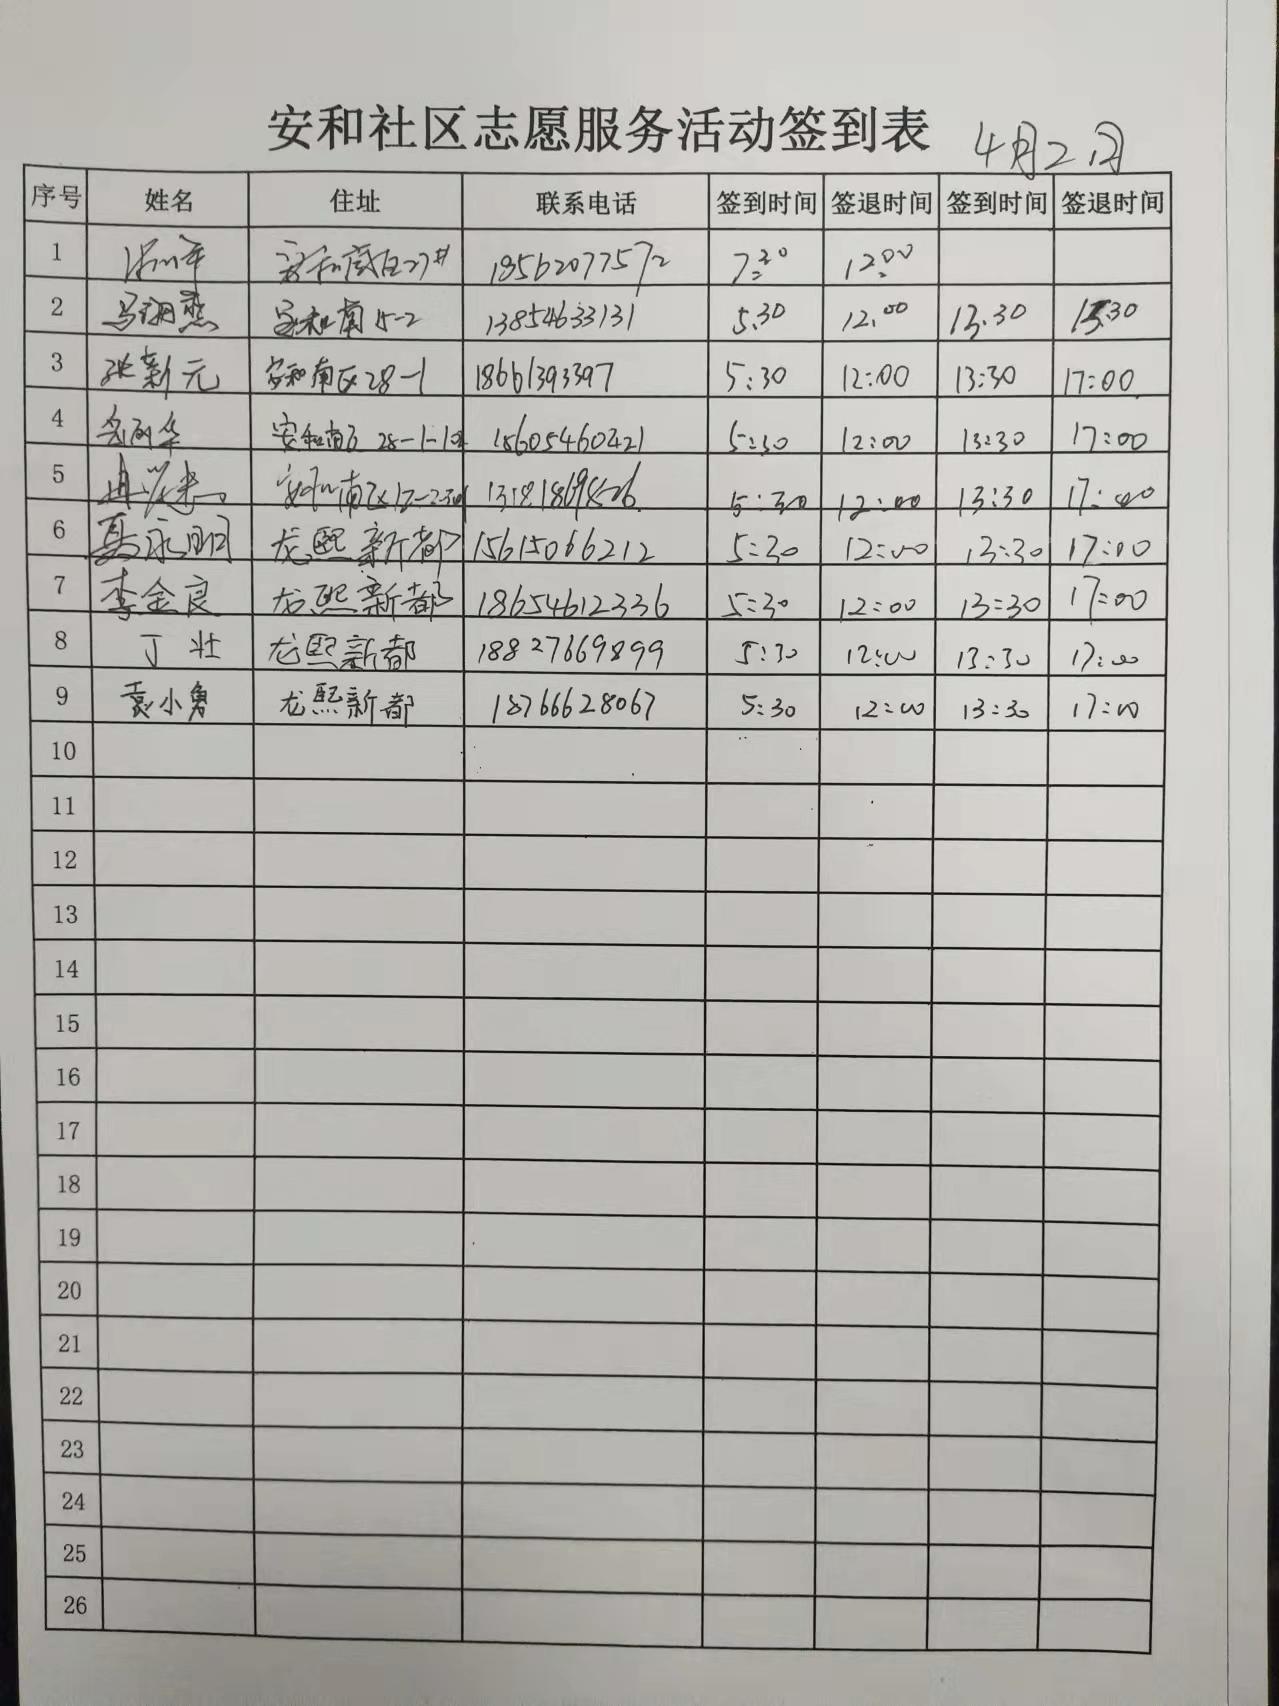 安和社区志愿服务活动签到表 4月2日
序号 姓名 住址 联系电话 签到时间 签退时间 签到时间 签退时间
1 18562077572 7:30 12:00
2 安和南15-2 13854633131 5.30 12.00 13.30 15.30
3 张新元 安和南区28-1 18661393397 5:30 12:00 13:30 17:00
4 安和南区 28-1-102 18605460421 5:30 12:00 13:30 17:00
5 安和南区 5:30 12:00 13:30 17:00
6 聂永明 龙熙新都 15615066212 5:30 12:00 13:30 17:00
7 李金良 龙熙新都 18654612336 5:30 12:00 13:30 17:00
8 丁壮 龙熙新都 18827669899 5:30 12:00 13:30 17:00
9 袁小勇 龙熙新都 18766628067 5:30 12:00 13:30 17:00
10
11
12
13
14
15
16
17
18
19
20
21
22
23
24
25
26